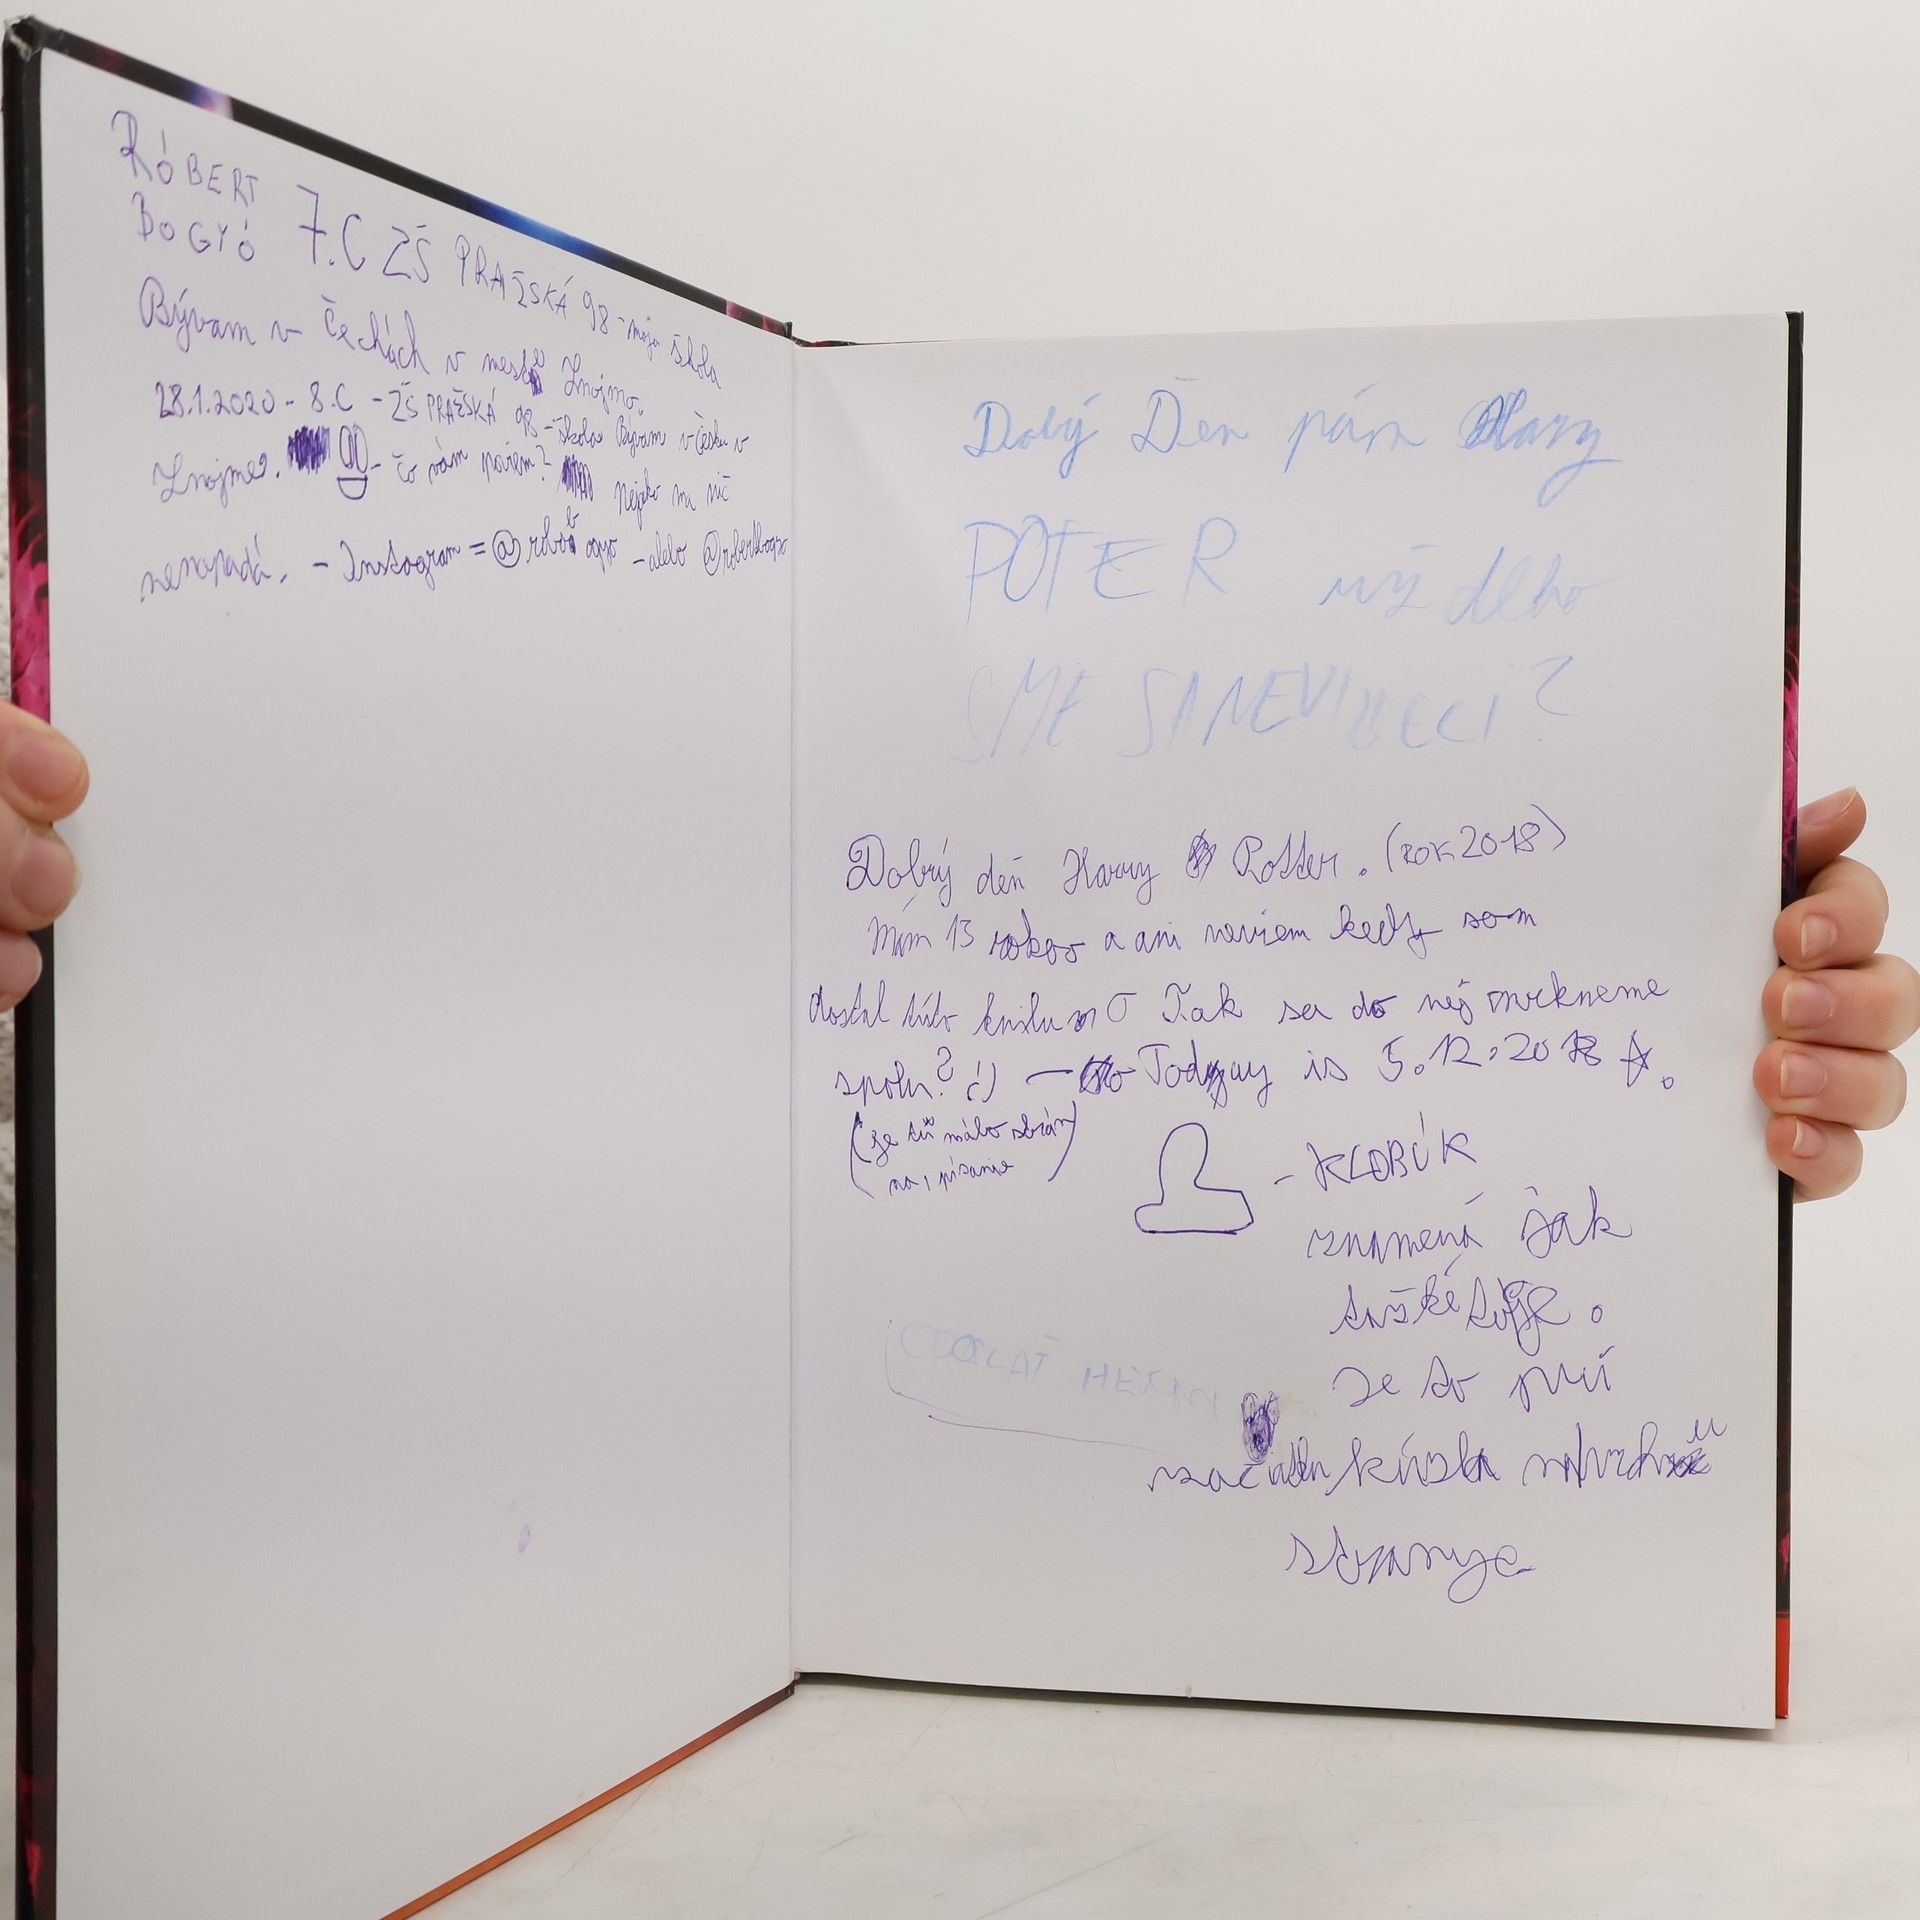 RÓBERT
BOGYÓ 7.C ZŠ PRAŽSKÁ 98 - moja škola
Bývam v Čechách v meste Znojmo.
28.1.2020 - 8.C - ZŠ PRAŽSKÁ 98 - škola Bývam v Česku v
Znojme. - čo vám poviem? Nejako mi nič
nenapadá. - Instagram = @robobogyo - alebo @robertbogyo
Dobý Ďeň pám Hary
POTER už dlho
SME SA NEVIDECI?
Dobrý deň Harry Potter. (rok 2018)
Mám 13 rokov a ani neviem kedy som
dostal túto knihu Tak sa do nej mrkneme
spolu? :) - Today is 5.12.2018
(je tu málo strán
na písanie)
- KLOBÚK
znamená jak
ťažké je.
Je to pri
začiatku
strany